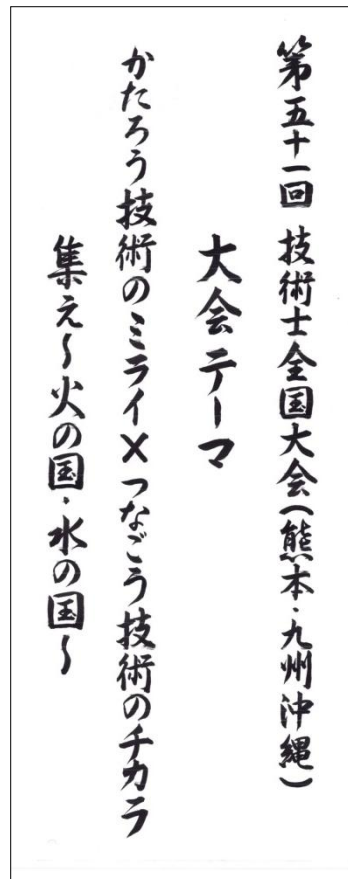 第五十一回 技術士全国大会(熊本・九州沖縄)
大会テーマ
かたろう技術のミライ×つなごう技術のチカラ
集え~火の国・水の国~